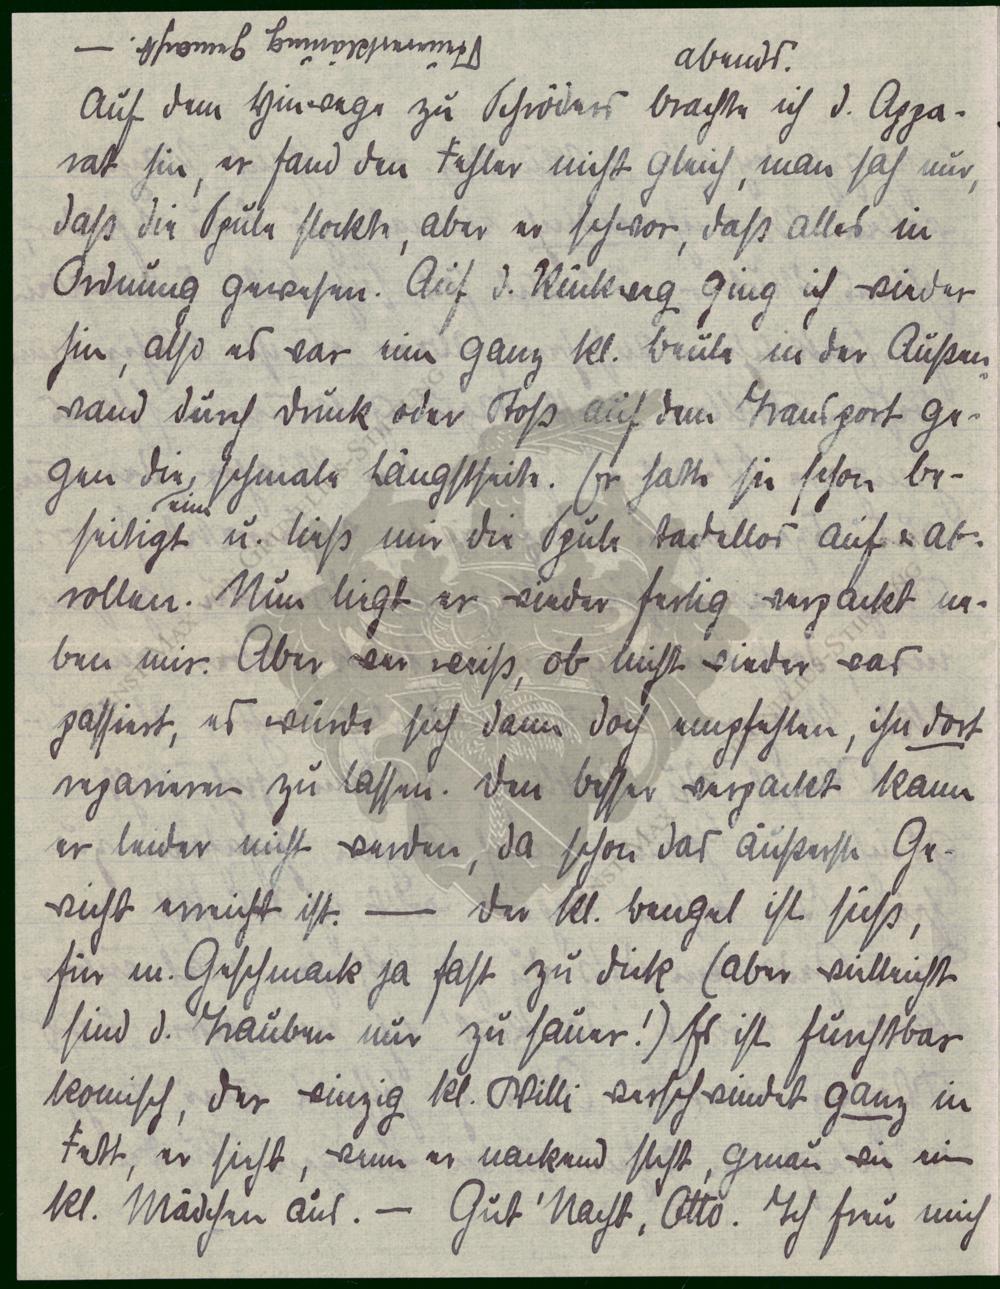 Steuererklärung gemacht. —
abends.
Auf dem Hinwege zu Schröders brachte ich d. Appa-
rat hin, er fand den Fehler nicht gleich, man sah nur,
daß die Spule stockte, aber er schwor, daß alles in
Ordnung gewesen. Auf d. Rückweg ging ich wieder
hin, also es war eine ganz kl. Beule in der Außen-
wand durch Druck oder Stoß auf dem Transport ge-
gen die eine schmale Längstseite. Er hatte sie schon be-
seitigt u. ließ mir die Spule tadellos auf & ab-
rollen. Nun liegt er wieder fertig verpackt ne-
ben mir. Aber wer weiß, ob nicht wieder was
passiert, es würde sich dann doch empfehlen, ihn dort
reparieren zu lassen. Den besser verpackt kann
er leider nicht werden, da schon das äußerste Ge-
wicht erreicht ist. — Der kl. Bengel ist süß,
für m. Geschmack ja fast zu dick (aber vielleicht
sind d. Trauben nur zu sauer!) Es ist furchtbar
komisch, der winzig kl. Willi verschwindet ganz in
Fett, er sieht, wenn er nackend steht, genau wie ein
kl. Mädchen aus. — Gut' Nacht, Otto. Ich freu mich